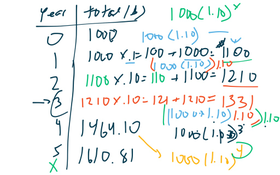 year total($) 1000(1.10)ˣ
0 1000 1000(1.10)
1 1000 x .1 = 100 + 1000 = 1100
(1000(1.10))1.10
2 1100 x .10 = 110 + 1100 = 1210
3 1210 x .10 = 121 + 1210 = 1331
1.10
4 1464.10 1000(1.10)³
5 1610.81 1000(1.10)
x